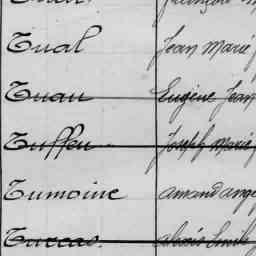 Tual Jean Marie
Tuau Eugène Jean
Tuffeu Joseph Marie
Tumoine Amand Ange
Turcas Alexis Emile